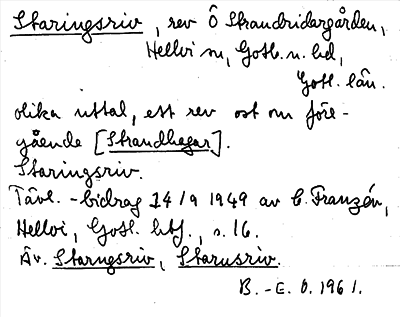 Staringsriv, rev Ö Strandridargården,
Hellvi sn, Gotl. n. hd,
Gotl. län.
olika uttal, ett rev ost om före-
gående [Strandhagar].
Staringsriv.
Tävl.-bidrag 14/9 1949 av C. Franzén,
Hellvi, Gotl. htf., s. 16.
Äv. Starngsriv, Starnsriv.
B.-E. O. 1961.